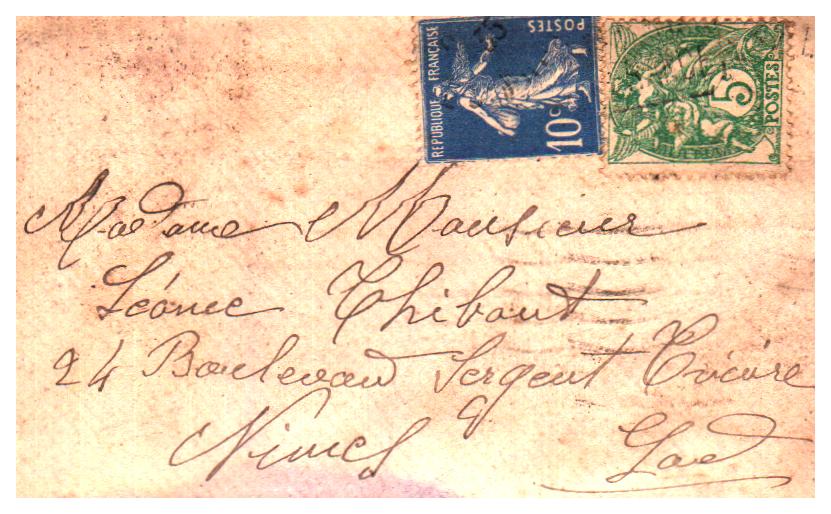 REPUBLIQUE FRANÇAISE
POSTES
10c
5
POSTES
Madame Monsieur
Léonce Thibaut
24 Boulevard Sergent Triaire
Nimes Gard